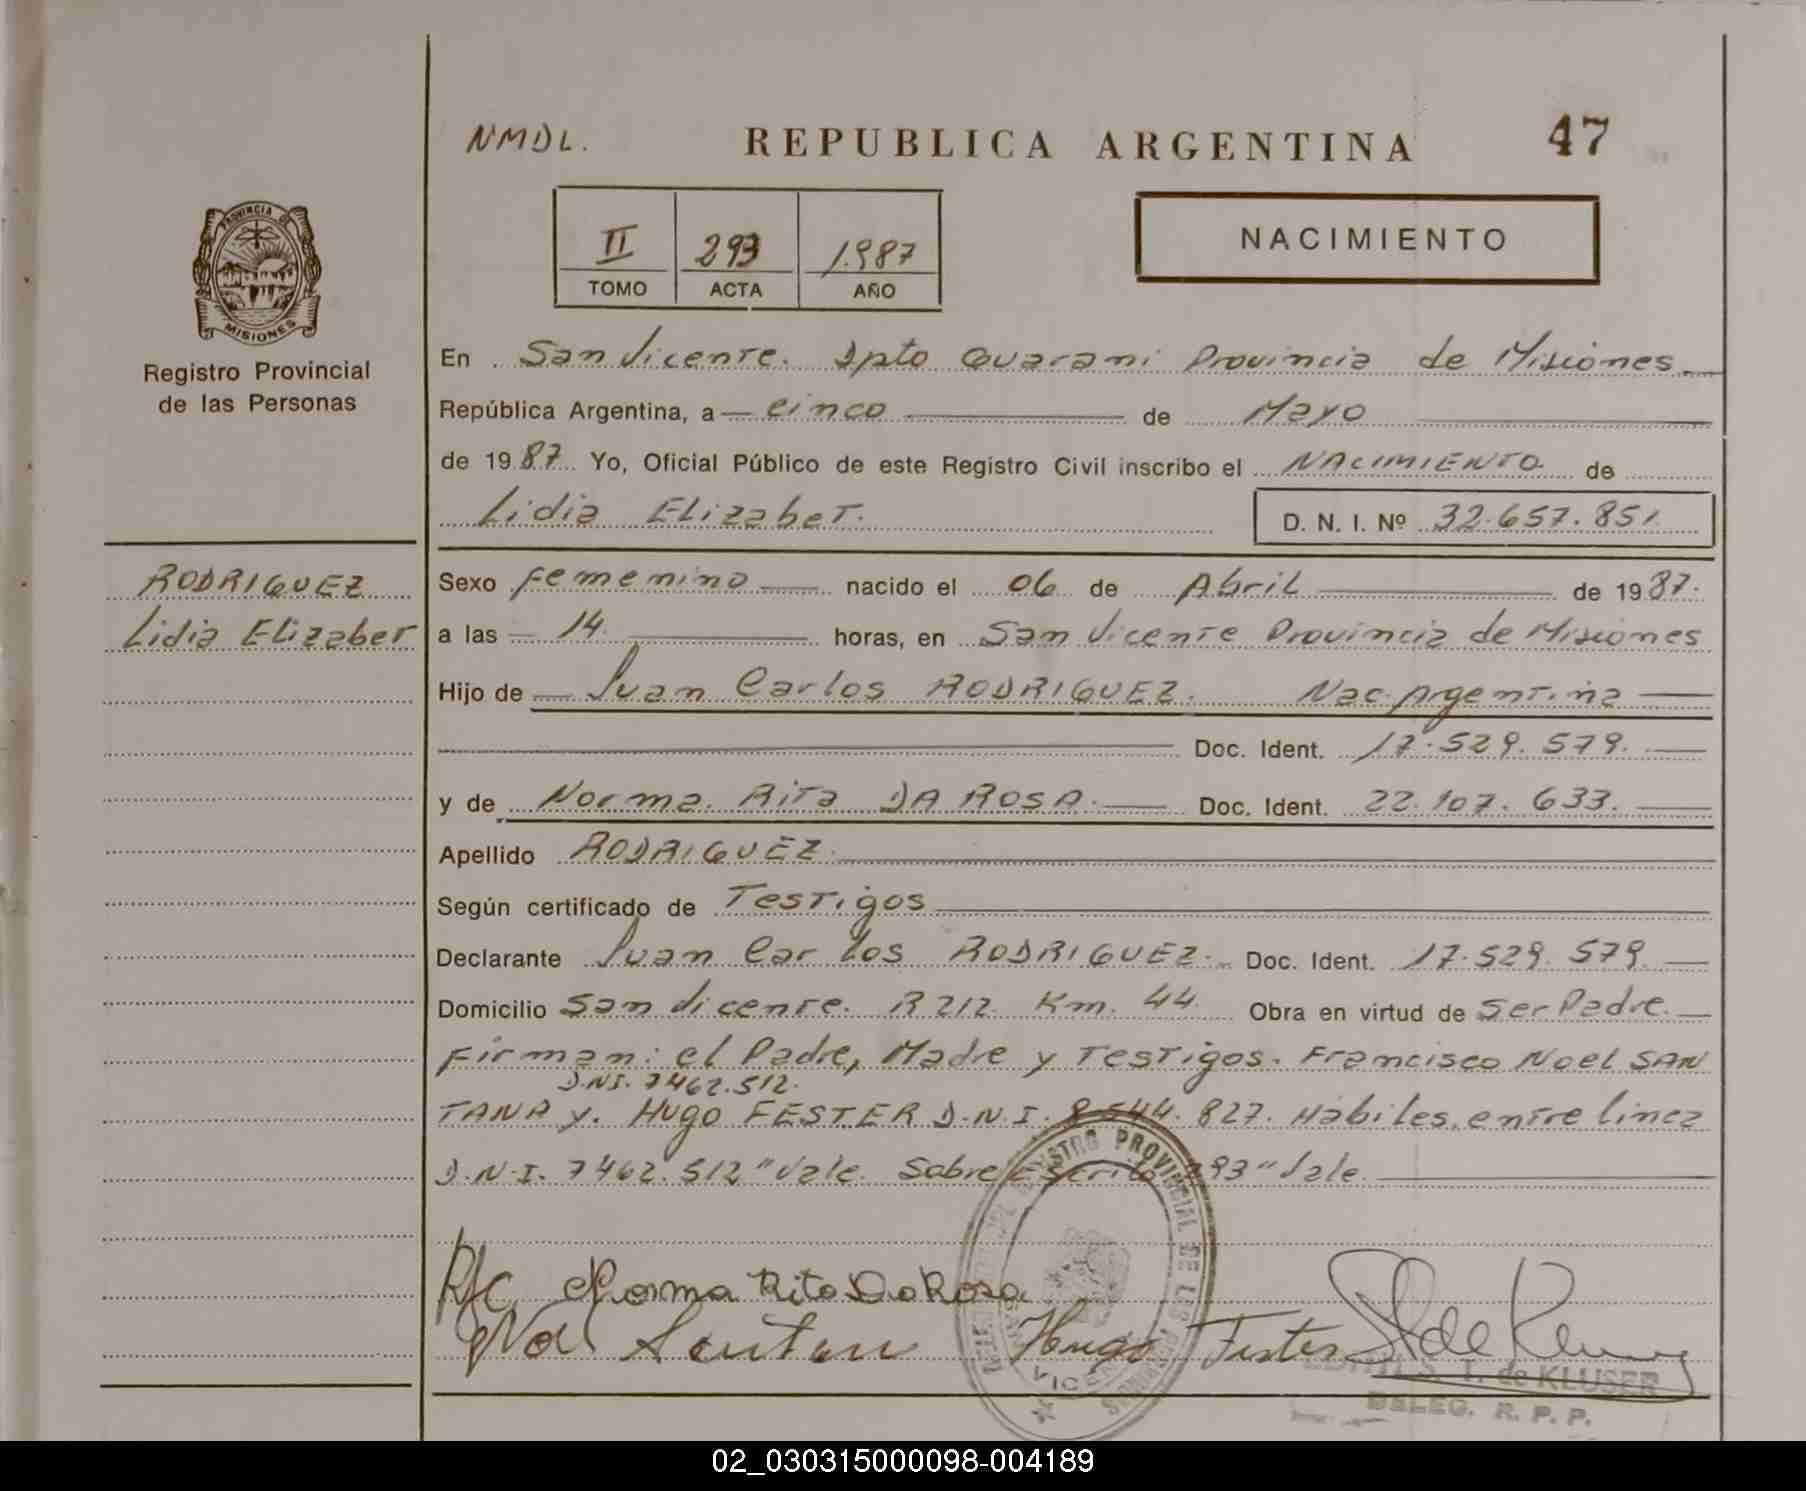 NMDL.
REPUBLICA ARGENTINA
47
PROVINCIA DE
MISIONES
Registro Provincial
de las Personas
II 293 1.987
TOMO ACTA AÑO
NACIMIENTO
En San Vicente. Dpto Guarani Provincia de Misiones
República Argentina, a cinco de Mayo
de 1987. Yo, Oficial Público de este Registro Civil inscribo el NACIMIENTO de
Lidia Elizabet. D. N. I. Nº 32.657.851
RODRIGUEZ
Lidia Elizabet
Sexo femenino nacido el 06 de Abril de 1987.
a las 14. horas, en San Vicente Provincia de Misiones
Hijo de Juan Carlos RODRIGUEZ. Nac. Argentina
Doc. Ident. 17.529.579.
y de Norma Rita DA ROSA. Doc. Ident. 22.107.633.
Apellido RODRIGUEZ.
Según certificado de Testigos
Declarante Juan Carlos RODRIGUEZ. Doc. Ident. 17.529.579
Domicilio San Vicente. R 212 Km. 44 Obra en virtud de Ser Padre.
Firman: el Padre, Madre y Testigos. Francisco Noel SAN
D.N.I. 7462.512.
TANA y. Hugo FESTER D.N.I. 8.544.827. Hábiles, entre linea
D.N.I. 7462.512" Vale. Sobre Escrito 293" Vale.
REGISTRO PROVINCIAL DE LAS PERSONAS
VIC
Norma Rita Da Rosa
Noel Santana Hugo Fester
S. T. de KLUSER
DELEG. R. P. P.
02_030315000098-004189